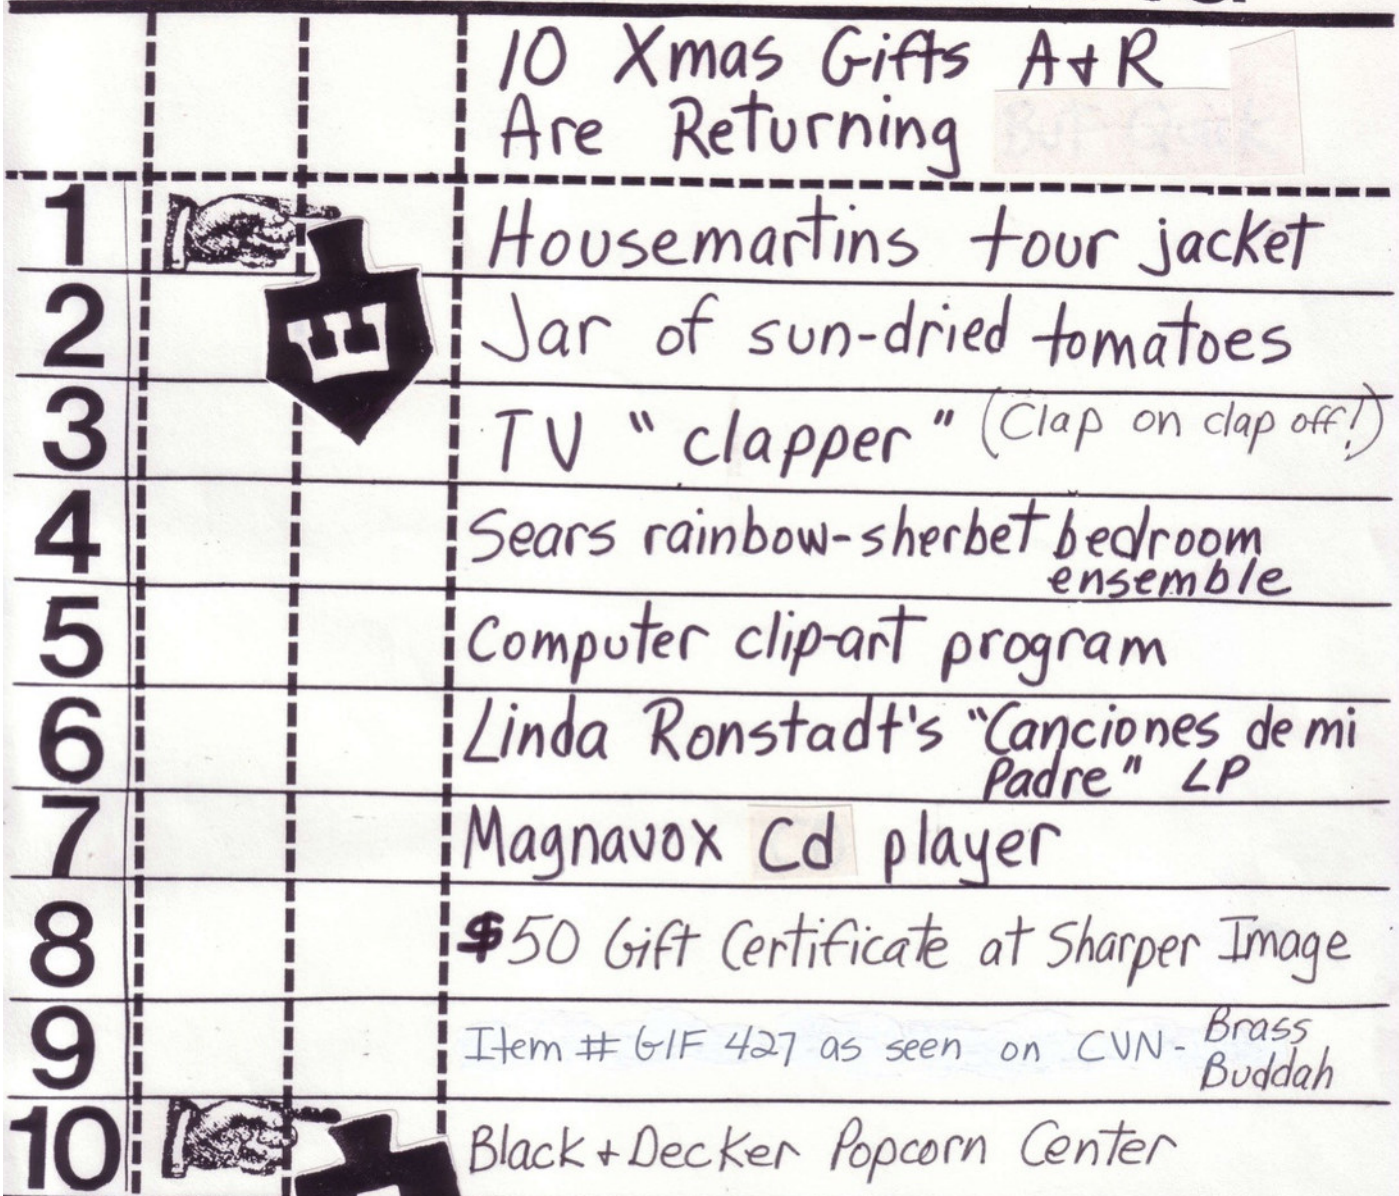 10 Xmas Gifts A+R
Are Returning
1 Housemartins tour jacket
2 Jar of sun-dried tomatoes
3 TV "clapper" (Clap on clap off!)
4 Sears rainbow-sherbet bedroom
ensemble
5 Computer clip-art program
6 Linda Ronstadt's "Canciones de mi
Padre" LP
7 Magnavox Cd player
8 $50 Gift Certificate at Sharper Image
9 Item # GIF 427 as seen on CVN- Brass
Buddah
10 Black + Decker Popcorn Center